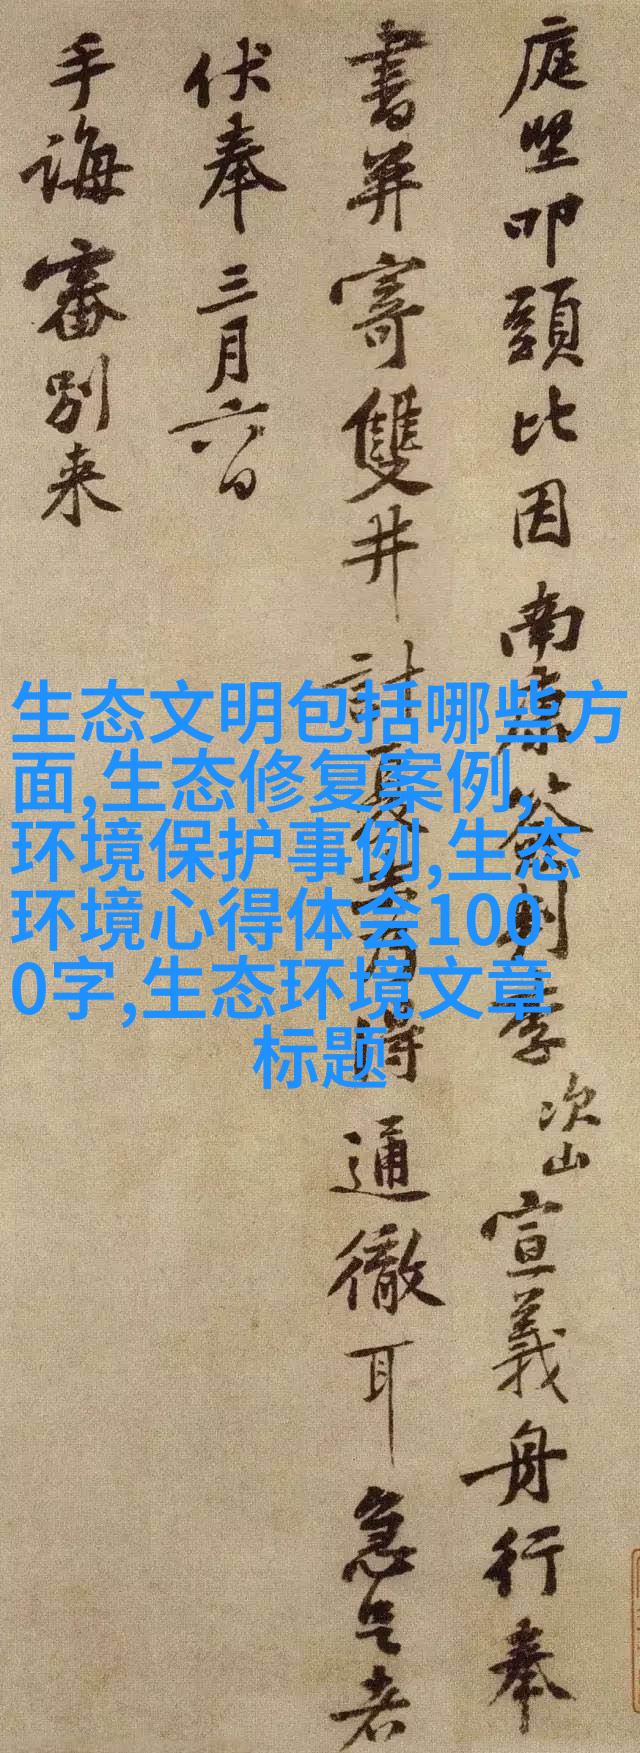 庭堅叩頭比因南康簽判李次山宣義舟行奉
書并寄雙井計夏得通徹耳急足者
伏奉三月六日
手誨審別来
生态文明包括哪些方
面,生态修复案例,
环境保护事例,生态
环境心得体会100
0字,生态环境文章
标题